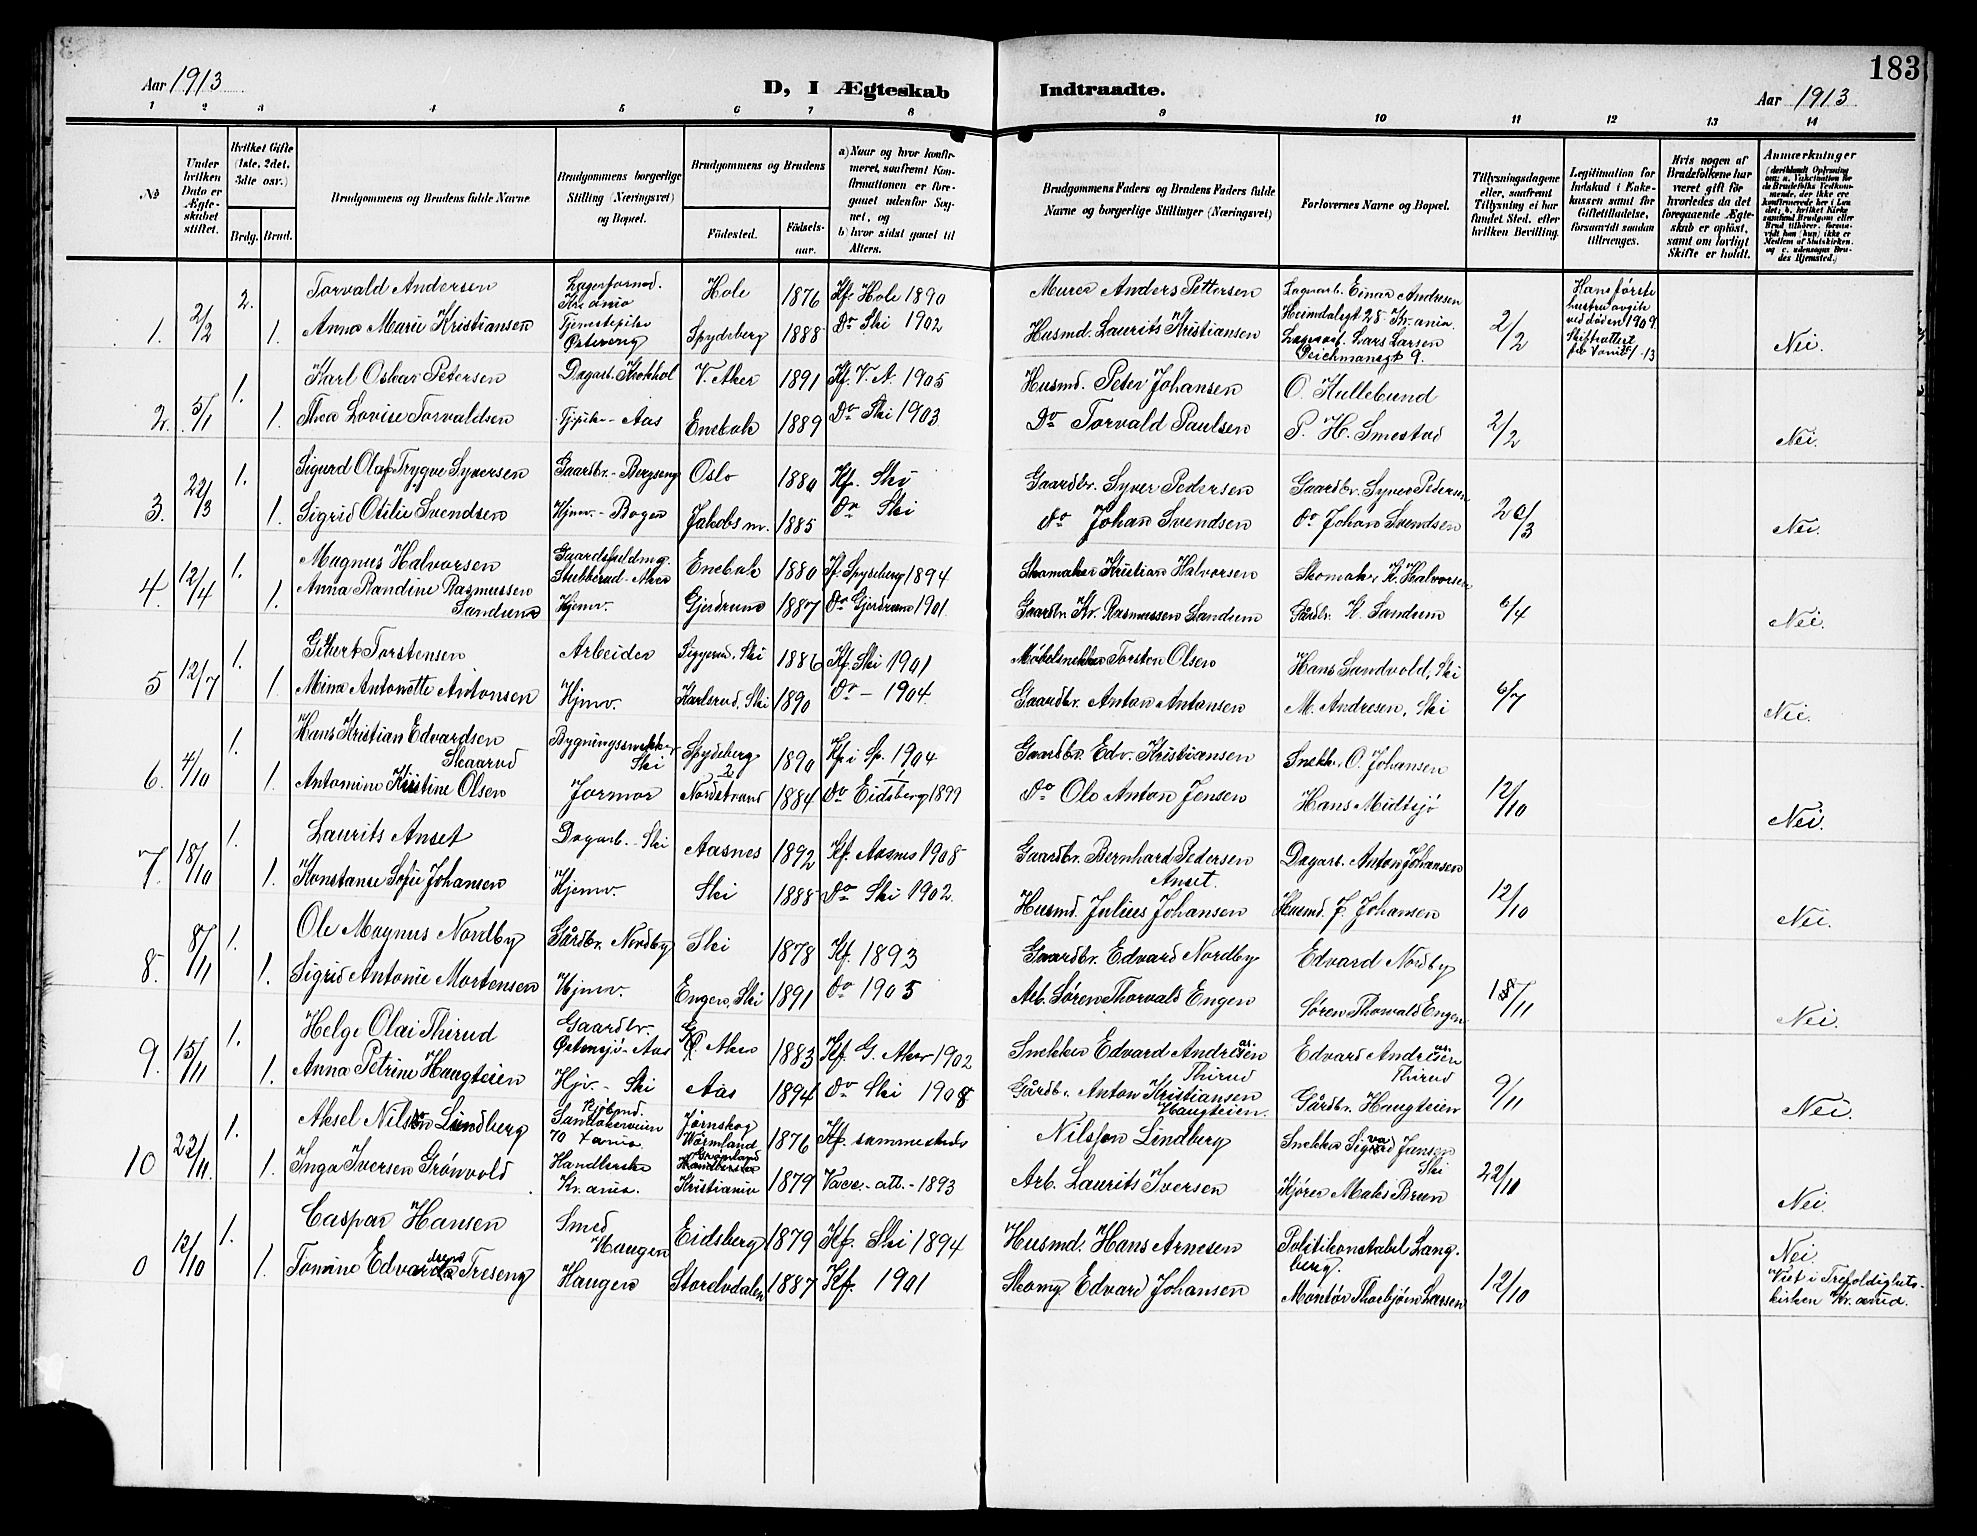 183
Aar 1913
D, I Ægteskab
Indtraadte.
Aar 1913
1 2 3 4 5 6 7 8 9 10 11 12 13 14
No
Under hvilken Dato er Ægteskabet stiftet.
Hvilket Gifte (1ste, 2det, 3die osv.)
Brdg. Brud.
Brudgommens og Brudens fulde Navne.
Brudgommens borgerlige Stilling (Næringsvei) og Bopæl.
Brudgommens og Brudens
Fødested.
Fødselsaar.
a) Naar og hvor konfirmeret, saafremt Konfirmationen er foregaaet udenfor Sognet, og
b) hvor sidst gaaet til Alters.
Brudgommens Faders og Brudens Faders fulde Navne og borgerlige Stillinger (Næringsvei)
Forlovernes Navne og Bopæl.
Tillysningsdagene eller, saafremt Tillysning ei har fundet Sted, efter hvilken Bevilling.
Legitimation for Indskud i Enkekassen samt for Giftetilladelse, forsaavidt saadan tiltrænges.
Hvis nogen af Brudefolkene har været gift før hvorledes da det foregaaende Ægteskab er opløst, samt om lovligt Skifte er holdt.
Anmærkninger
1. 2/2 2. Torvald Andersen Lagerformd. Kr.ania Hole 1876 Kf. Hole 1890 Murer Anders Pettersen Lagerarb. Einar Andresen Heimdalsgt 28 Kr.ania. 2/2 Hans første hustru avgik ved døden 1909. Skifteattest
1. Anna Marie Kristiansen Tjenestepike Østereng Spydeberg 1888 Do Ski 1902 Husmd. Laurits Kristiansen Lars Larsen Deichmansgt 9. Nei.
2. 5/1 1. Karl Oskar Petersen Dagarb. Krokhol V. Aker 1891 Kf. V. A. 1905 Husmd. Peter Johansen O. Hullebund 2/2
1. Thea Lovise Torvaldsen Tjpike - Aas Enebak 1889 Do Ski 1903 Do Torvald Paulsen P. H. Smestad Nei.
3. 22/3 1. Sigurd Olaf Trygve Syversen Gaardbr. - Bergseng Oslo 1880 Kf. Ski Gaardbr. Syver Pedersen Gaardbr. Syver Pedersen 20/3
1. Sigrid Otilie Svendsen Hjmv. - Bogen Jakobs m. 1885 Do Ski do Johan Svendsen do Johan Svendsen Nei.
4. 12/4 1. Magnus Halvorsen Stubberud - Aker Enebak 1880 Kf. Spydeberg 1894 Skomaker Kristian Halvorsen Skomaker K. Halvorsen 6/4
1. Anna Randine Rasmussen Sandum Hjmv. Gjerdrum 1887 Do Gjerdrum 1901. Gaardbr. Kr. Rasmussen Sandum Gårdbr. K. Sandum Nei.
5 12/7 1. Torstensen Arbeider Siggerud, Ski 1886 Kf. Ski 1901 Møbelsnekker Torsten Olsen Hans Sandvold, Ski 6/7
1. Mina Antonette Antonsen Hjmv. Karlsrud, Ski 1890 do - 1904. Gaardbr. Anton Antonsen M. Andresen, Ski Nei.
6. 4/10 1. Hans Kristian Edvardsen Skaarud Bygningssnekker Ski Spydeberg 1890 Kf. i Sp. 1904 Gaardbr. Edv. Kristiansen Snekk. O. Johansen 12/10
1. Antomine Kristine Olsen Jormor Nordstrand 1884 do Eidsberg 1899 do Ole Anton Jensen Hans Midtsjø Nei.
7. 18/10 1. Laurits Anset Dagarb. - Ski Aasnes 1892 Kf. Aasnes 1908 Gaardbr. Bernhard Pedersen Anset. Dagarb. Anton Johansen 12/10
1. Konstanse Sofie Johansen Hjemv. Ski 1888 do Ski 1902. Husmd. Julius Johansen Husmd. J. Johansen Nei.
8. 8/11 1. Ole Magnus Nordby Gårdbr. Nordby Ski 1878 Kf. 1893 Gaardbr. Edvard Nordby Edvard Nordby
1. Sigrid Antonie Mortensen Hjmv. Engen, Ski 1891 do 1905 Arb. Søren Thorvald Engen Søren Thorvald Engen Nei.
9. 15/11 1. Helge Olai Thirud Gaardbr. Østensjø - Aas G. Aker 1883 Kf. G. Aker 1902 Snekker Edvard Andreasen Thirud Edvard Andreasen Thirud 9/11
1. Anna Petrine Haugteien Hjv. - Ski Aas 1894 do Ski 1908 Gårdbr. Anton Kristiansen Haugteien. Gårdbr. Haugteien Nei.
10 22/11. 1. Aksel Nilson Lindberg Kjøbmd. Sandakerveien 70 Kr.ania Jørnskog Wermland 1876 Kf. sammesteds Nilsson Lindberg Snekker Sigvard Jensen Ski 22/10
1. Inga Iversen Grønvold Handlerske Kr.ania. Grønland Kristiania 1879 Vacc. - att. - 1893 Arb. Laurits Iversen Kjører Maks Brun Nei.
0 12/10 1. Caspar Hansen Smed Haugen Eidsberg 1879 Kf. Ski 1894 Husmd. Hans Arnesen Politikonstabel Langberg. 12/10 Nei
1. Tomine Edvardsen Treseng Haugen Stordvdalen 1887 Kf. 1901 Skomg Edvard Johansen Montør Thorbjørn Larsen Viet i Trefoldighetskirken Kr.ania.